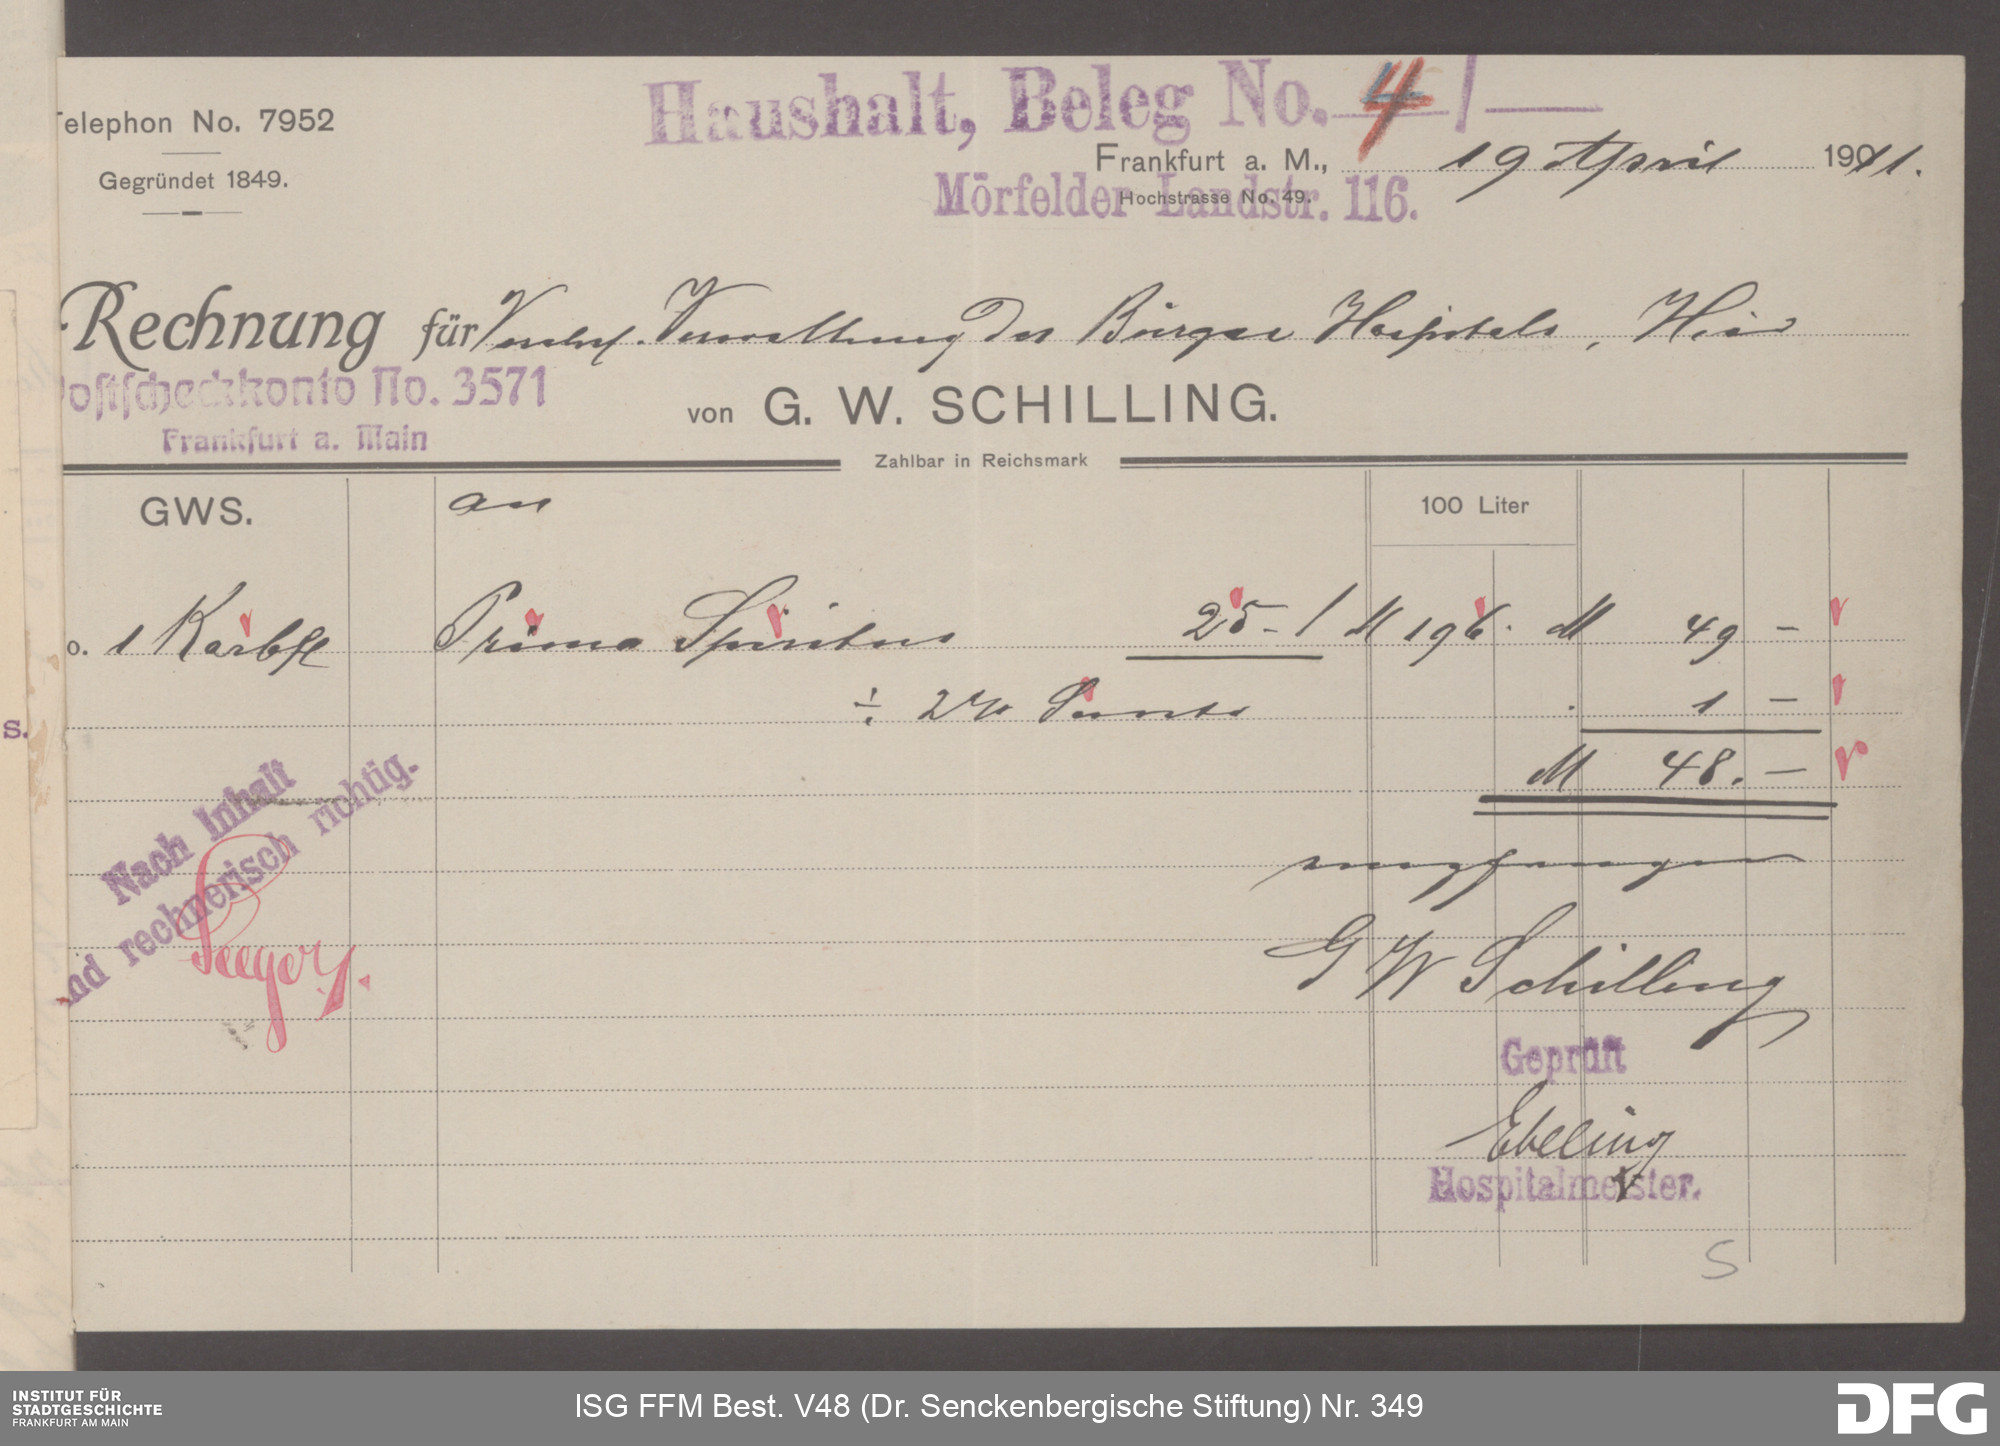 Haushalt, Beleg No. 4 / —
Telephon No. 7952
Gegründet 1849.
Frankfurt a. M., 19 April 1911.
Hochstrasse No. 49.
Mörfelder Landstr. 116.
Rechnung für Verehrl. Verwaltung des Bürger Hospitals, Hier
Postscheckkonto No. 3571
Frankfurt a. Main
von G. W. SCHILLING.
Zahlbar in Reichsmark
GWS. an 100 Liter
o. 1 Korbfl Prima Spiritus 25 - l M 196. M 49 —
÷ 2% Sconto . 1 —
M 48. —
empfangen
G W Schilling
Nach Inhalt
und rechnerisch richtig.
Seeger
Geprüft
Ebeling
Hospitalmeister.
S
s.
INSTITUT FÜR
STADTGESCHICHTE
FRANKFURT AM MAIN
ISG FFM Best. V48 (Dr. Senckenbergische Stiftung) Nr. 349
DFG